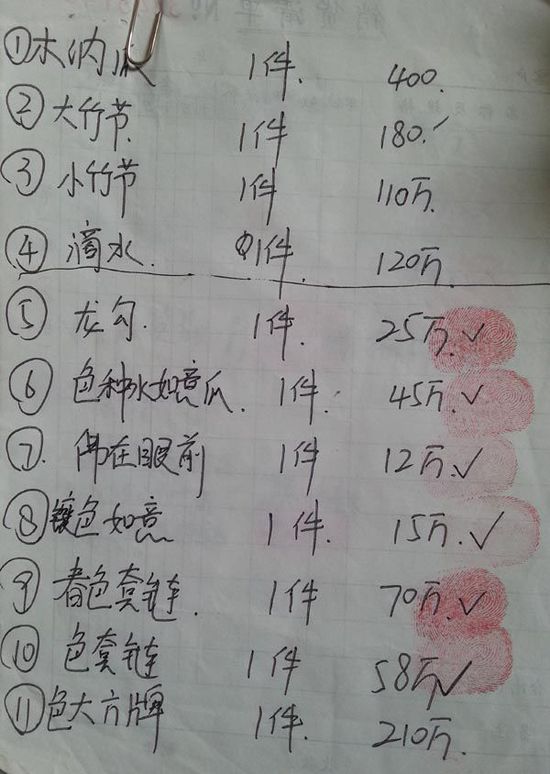 销货清单 No
①木内瓜 1件. 400.
②大竹节 1件 180.✓
③小竹节 1件 110万.
④滴水. 1件. 120万.
⑤龙勾. 1件. 25万.✓
⑥色种水如意瓜. 1件. 45万.✓
⑦.佛在眼前 1件 12万.✓
⑧镶色如意 1件. 15万.✓
⑨春色套链. 1件 70万.✓
⑩色套链 1件 58万✓
⑪色大方牌 1件. 210万.